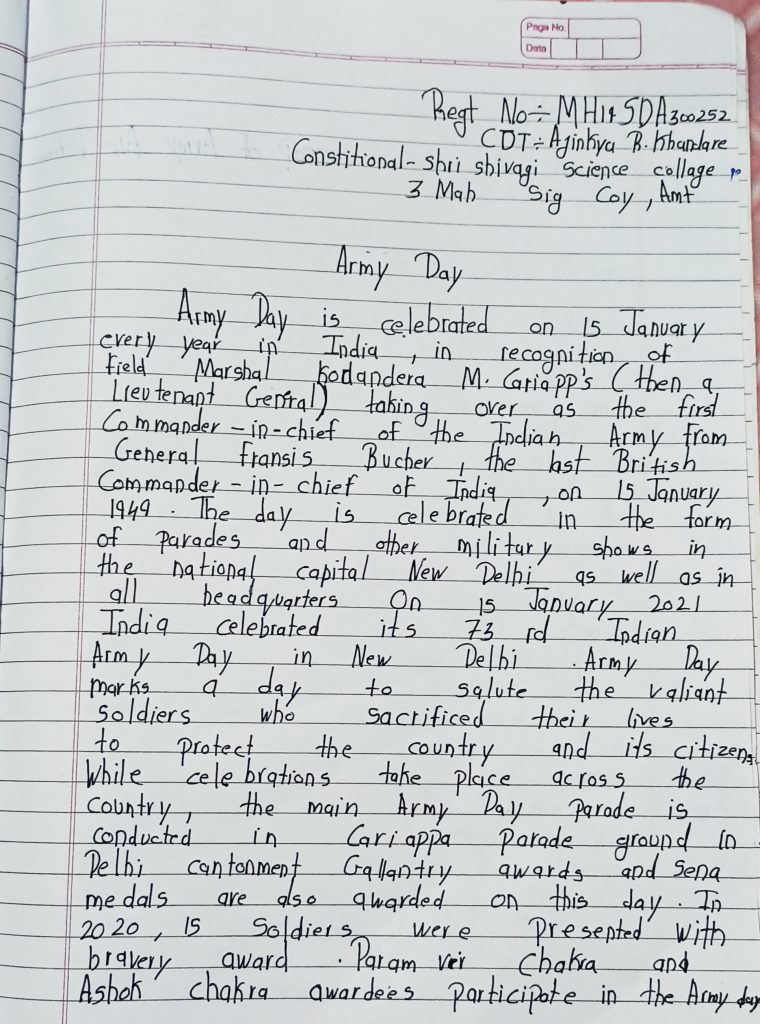 Page No.
Date
Regt No÷ MH19SDA300252
CDT÷ Ajinkya B. Khandare
Constitional- shri shivagi science collage
3 Mah Sig Coy, Amt
Army Day
Army Day is celebrated on 15 January
every year in India, in recognition of
field Marshal Kodandera M. Cariapp's (then a
Lieutenant General) taking over as the first
Commander-in-chief of the Indian Army from
General fransis Bucher, the last British
Commander-in-chief of India, on 15 January
1949. The day is celebrated in the form
of parades and other military shows in
the national capital New Delhi as well as in
all headquarters On 15 January 2021
India celebrated its 73 rd Indian
Army Day in New Delhi. Army Day
marks a day to salute the valiant
soldiers who sacrificed their lives
to protect the country and its citizens
While celebrations take place across the
country, the main Army Day parade is
conducted in Cariappa parade ground in
Delhi cantonment Gallantry awards and Sena
medals are also awarded on this day. In
2020, 15 Soldiers were presented with
bravery award. Param vir Chakra and
Ashok chakra awardees participate in the Army day